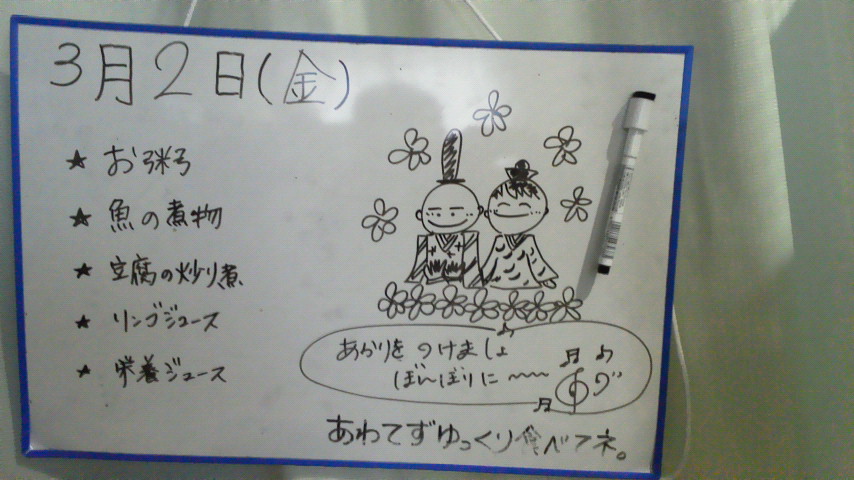 3月2日(金)
★ お粥
★ 魚の煮物
★ 豆腐の炒り煮
★ リンゴジュース
★ 栄養ジュース
あかりを つけましょ
ぼんぼりに 〜〜〜
あわてずゆっくり食べてネ。